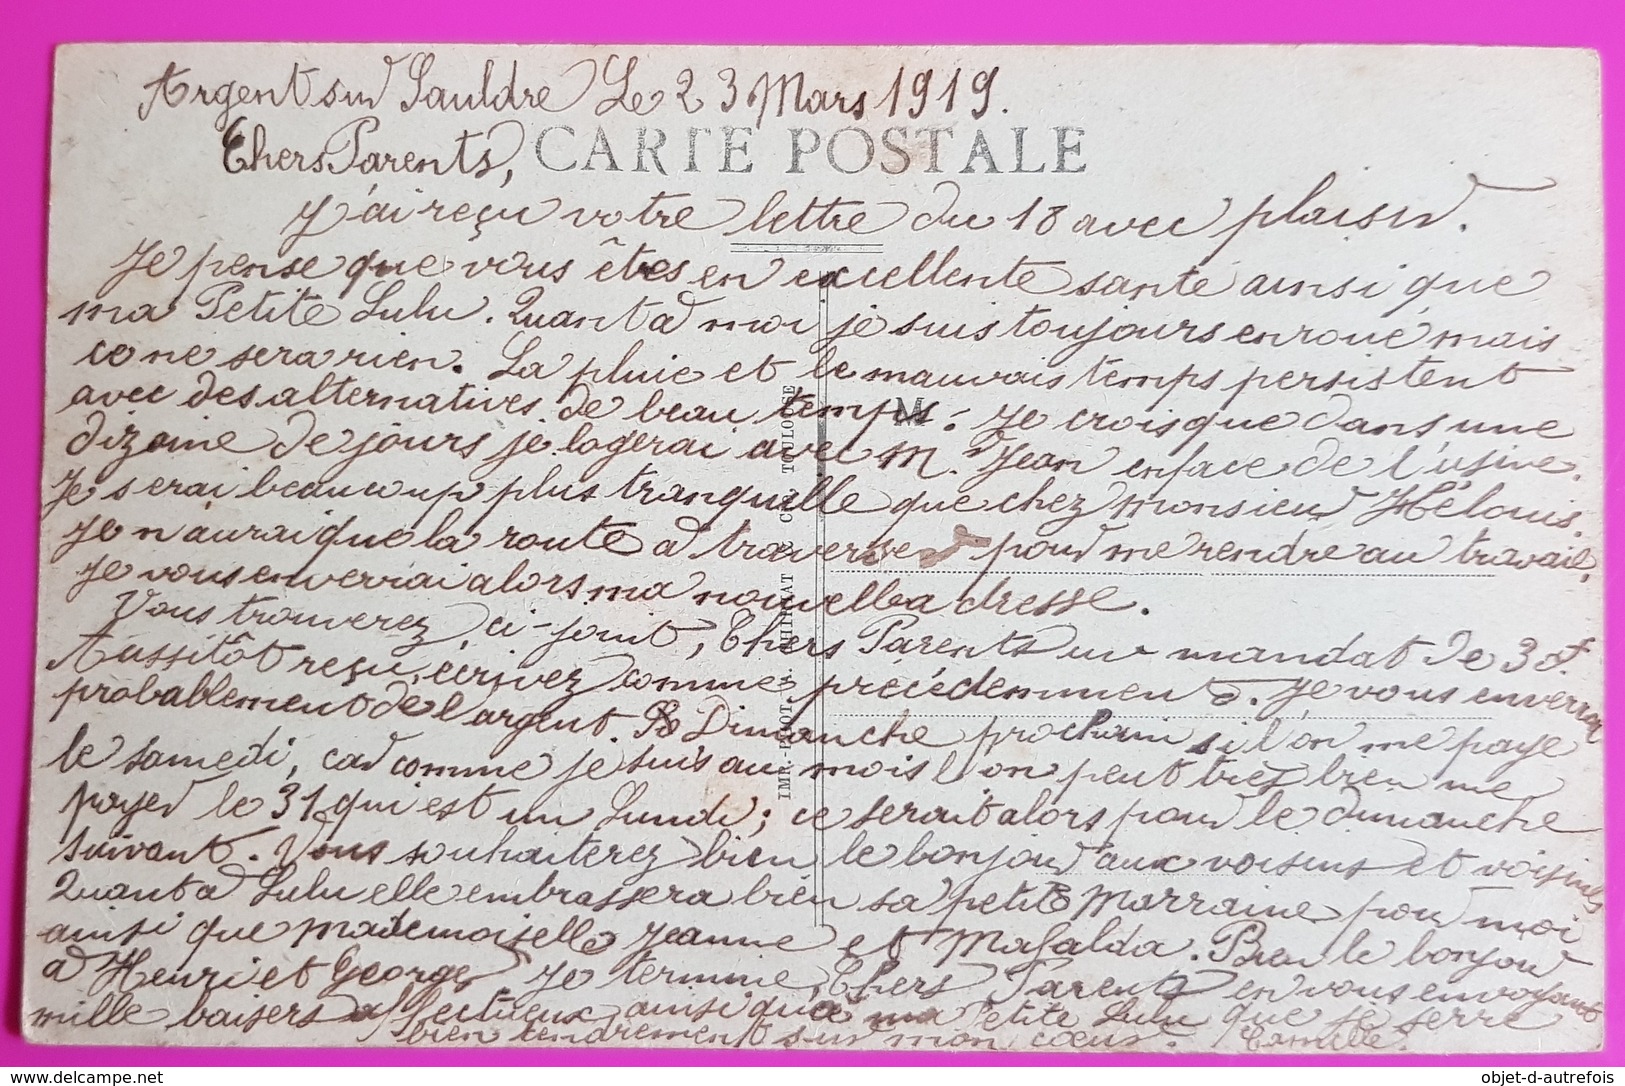 Argent sur Sauldre Le 23 Mars 1919.
Chers Parents,
CARTE POSTALE
J'ai reçu votre lettre du 18 avec plaisir.
Je pense que vous êtes en excellente santé ainsi que
ma Petite Lulu. Quant à moi je suis toujours enroué mais
ce ne sera rien. La pluie et le mauvais temps persistent
avec des alternatives de beau temps. Je crois que dans une
dizaine de jours je logerai avec M. Jean en face de l'usine.
Je serai beaucoup plus tranquille que chez Monsieur Hélouis.
Je n'aurai que la route à traverser pour me rendre au travail.
Je vous enverrai alors ma nouvelle adresse.
Vous trouverez, ci-joint, Chers Parents un mandat de
Aussitôt reçu, écrivez comme précédemment. Je vous enverrai
probablement de l'argent Dimanche prochain si l'on me paye
le samedi, car comme je suis au mois l'on peut très bien me
payer le 31 qui est un Lundi; ce serait alors pour le dimanche
suivant. Vous souhaiterez bien le bonjour aux voisins et voisines
Quant à Lulu elle embrassera bien sa petite Marraine pour moi
ainsi que Mademoiselle Jeanne et Mafalda. Bien le bonjour
à Henri et Georges Je termine, Chers Parents en vous envoyant
mille baisers affectueux ainsi que ma Petite Lulu que je serre
bien tendrement sur mon cœur. Camille.
TOULOUSE
M
IMP.-
objet-d-autrefois
www.delcampe.net